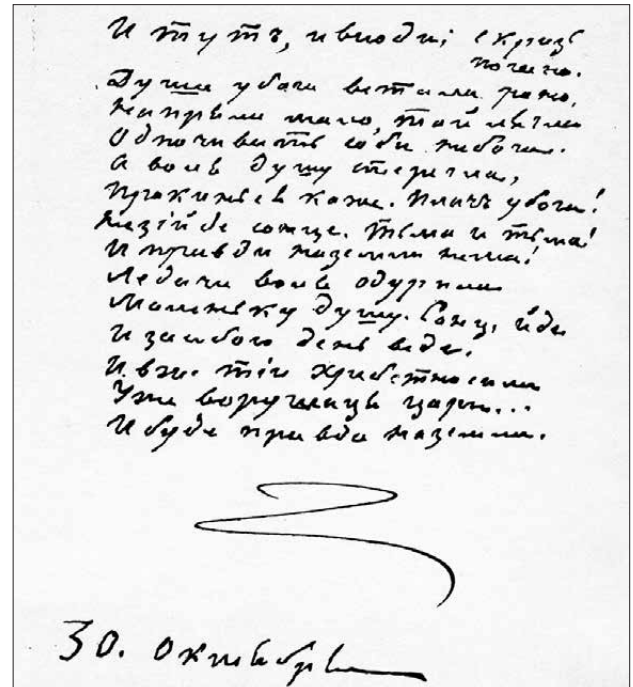 И тутъ, и всюди; скризь
погано.
Душа убога встала рано,
Напряла мало, тай лягла
Одпочивать соби небога.
А воля душу стерегла,
Прокинься каже. Плачь убога!
Незійде сонце. Тьма и тьма!
И правди наземли нема!
Ледача воля одурила
Маленьку душу. Сонце йде
И засобою день веде.
И вже тіи хребетносили
Уже ворушаця цари...
И буде правда наземли.
30. Октября